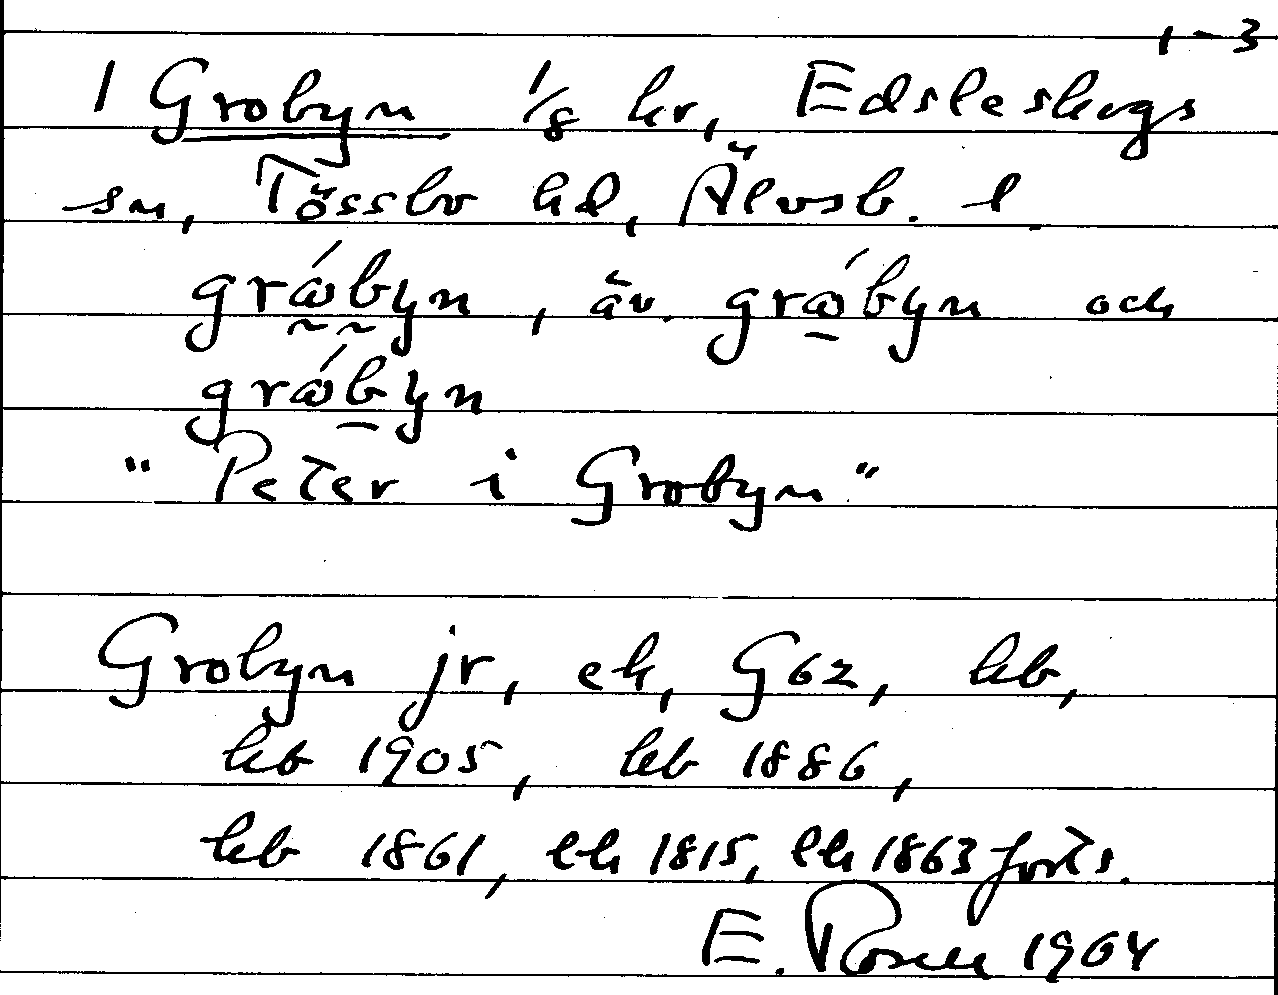 1-3
1 Grobyn 1/8 kr, Edsleskogs
sn, Tössbo hd, Älvsb. l.
grǿbyn, äv. grǿbyn och
grǿbyn
"Peter i Grobyn"
Grobyn jr, ek, G62, kb,
kb 1905, kb 1886,
kb 1861, lh 1815, lh 1863 forts.
E. Rosell 1964